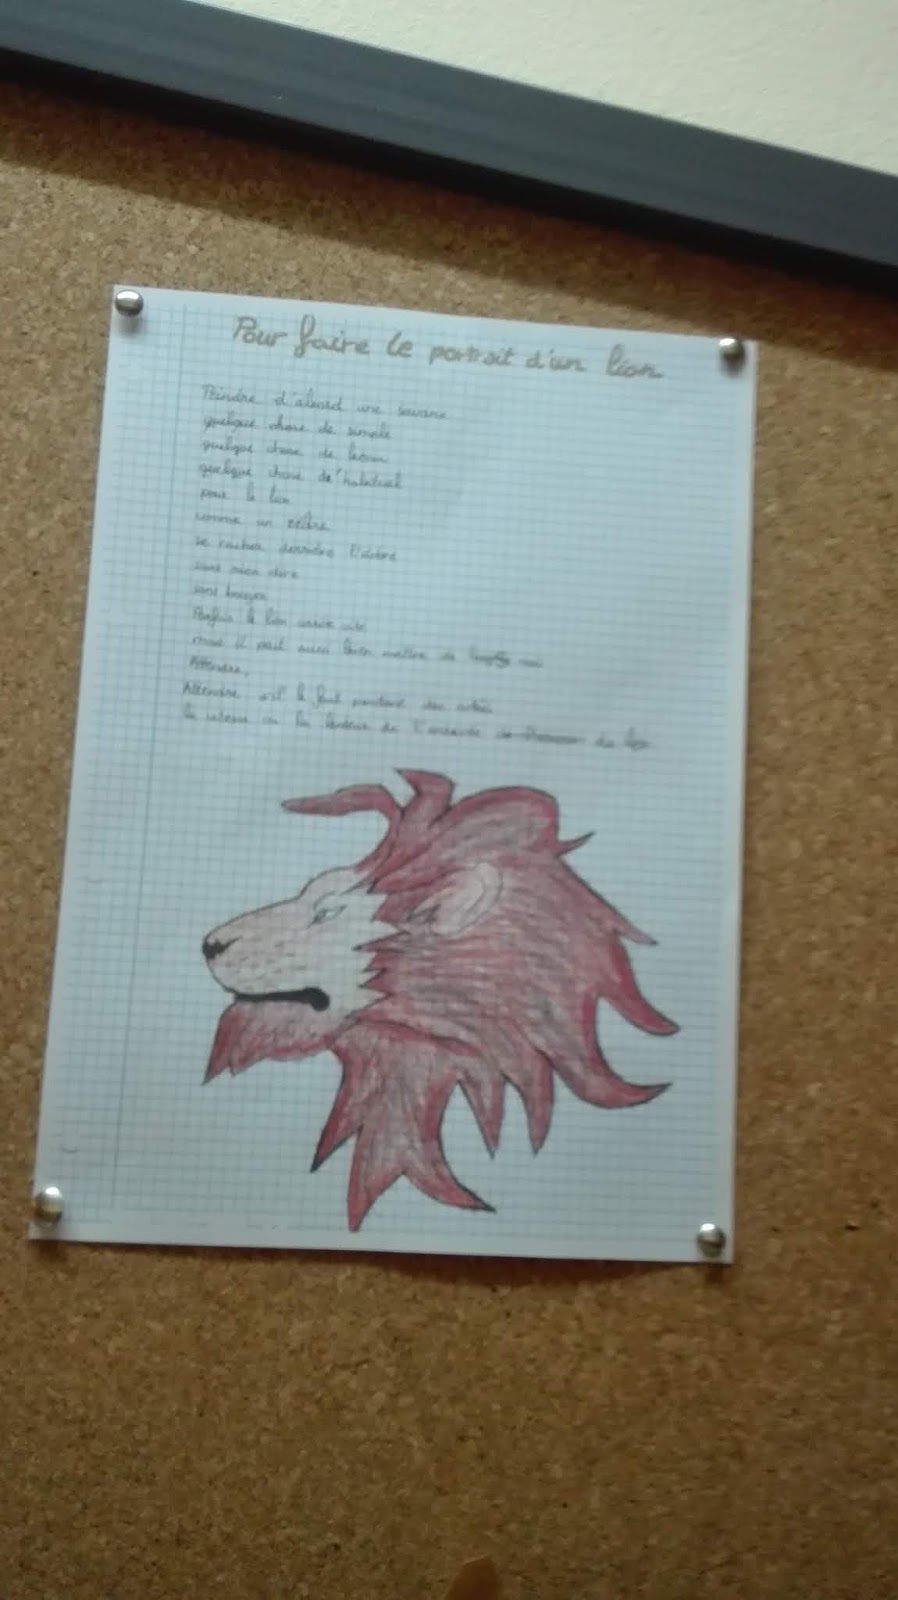 Pour faire le portrait d'un lion
Peindre d'abord une savane
quelque chose de simple
quelque chose de beau
quelque chose de l'habituel
pour le lion
comme un zèbre
se cacher derrière l'arbre
sans rien dire
sans bouger
Parfois le lion arrive vite
mais il peut aussi bien mettre de
Attendre,
Attendre s'il le faut pendant des
la vitesse ou la lenteur de l'arrivée du